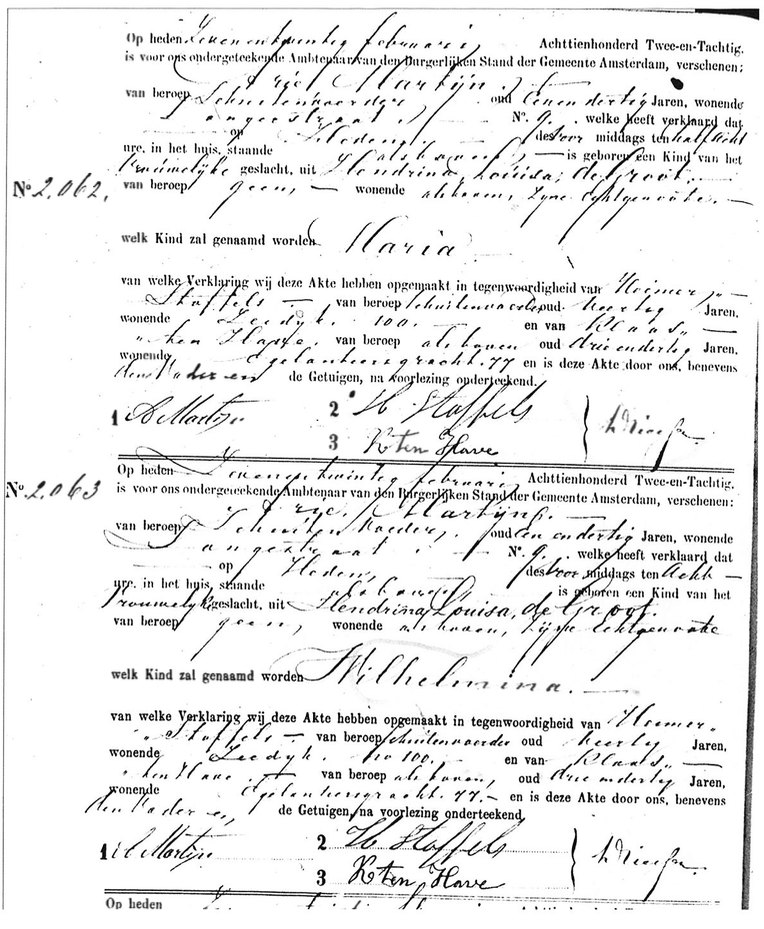 Op heden Zeven en twintig februari, Achttienhonderd Twee-en-Tachtig,
is voor ons ondergeteekende Ambtenaar van den Burgerlijken Stand der Gemeente Amsterdam, verschenen:
Martijn.
van beroep Schuitenvoerder oud Een en dertig Jaren, wonende
No. 9. welke heeft verklaard dat
op Heden, des voor middags ten half Acht
ure, in het huis, staande alsboven, is geboren een Kind van het
Vrouwelijke geslacht, uit Hendrina, Louisa, de Groot.
No 2,062, van beroep geen, wonende alsboven, zijne Echtgenoote.
welk Kind zal genaamd worden Maria
van welke Verklaring wij deze Akte hebben opgemaakt in tegenwoordigheid van
Stoffels van beroep Schuitenvoerder oud veertig Jaren,
wonende Zeedijk. 100. en van Klaas
ten Have. van beroep alsboven oud drie en dertig Jaren,
wonende Egelantiersgracht. 77 en is deze Akte door ons, benevens
den Vader en de Getuigen, na voorlezing onderteekend.
1 A Martijn 2 H Stoffels
3 K ten Have
Op heden Zeven en twintig februari, Achttienhonderd Twee-en-Tachtig,
No. 2,063 is voor ons ondergeteekende Ambtenaar van den Burgerlijken Stand der Gemeente Amsterdam, verschenen:
Martijn.
van beroep Schuitenvoerder, oud een en dertig Jaren, wonende
No. 9. welke heeft verklaard dat
op Heden, des voor middags ten Acht
ure, in het huis, staande alsboven, is geboren een Kind van het
Vrouwelijk geslacht, uit Hendrina, Louisa, de Groot.
van beroep geen, wonende alsboven, zijne Echtgenoote
welk Kind zal genaamd worden Wilhelmina.
van welke Verklaring wij deze Akte hebben opgemaakt in tegenwoordigheid van
Stoffels van beroep Schuitenvoerder oud veertig Jaren,
wonende Zeedijk. no 100. en van Klaas
ten Have. van beroep alsboven, oud drie en dertig Jaren,
wonende Egelantiersgracht. 77. en is deze Akte door ons, benevens
den Vader en, de Getuigen, na voorlezing onderteekend,
1 A Martijn 2 H Stoffels
3 K ten Have
Op heden